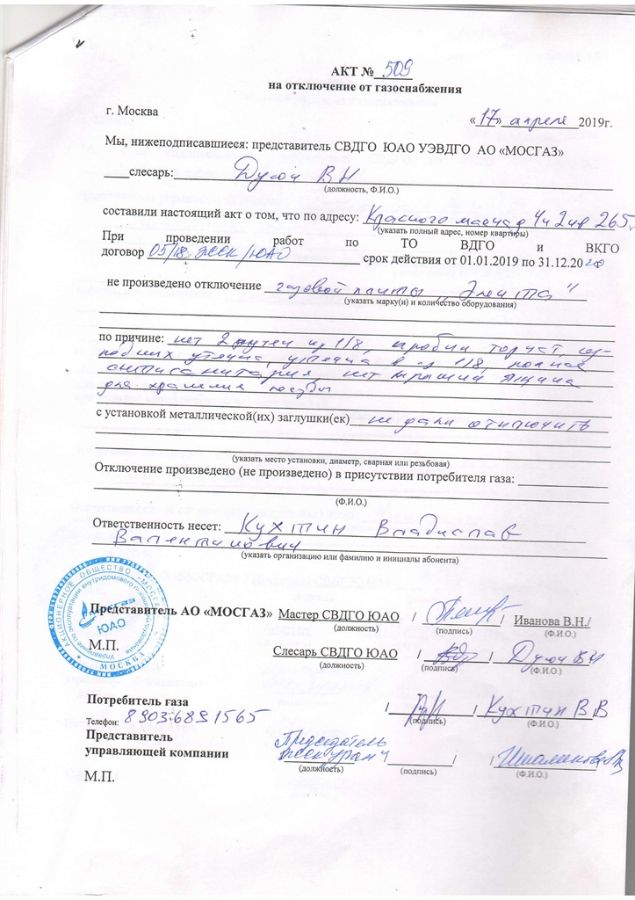 АКТ № 509
на отключение от газоснабжения
г. Москва «17» апреля 2019г.
Мы, нижеподписавшиеся: представитель СВДГО ЮАО УЭВДГО АО «МОСГАЗ»
слесарь: ВН
(должность, Ф.И.О.)
составили настоящий акт о том, что по адресу: Красного маяка д 4 к 2 кв 265.
(указать полный адрес, номер квартиры)
При проведении работ по ТО ВДГО и ВКГО
договор 05/18 ЖСК/ЮАО срок действия от 01.01.2019 по 31.12.2020
не произведено отключение газовой плиты „Элита"
(указать марку(и) и количество оборудования)
по причине: нет 2 ручек из 1/8,
утечка, утечка в 1/8, полная
антисанитария нет крышки ящика
для хранения посуды
с установкой металлической(их) заглушки(ек) не дали отключить
(указать место установки, диаметр, сварная или резьбовая)
Отключение произведено (не произведено) в присутствии потребителя газа:
(Ф.И.О.)
Ответственность несет: Кухтин Владислав
Валентинович
(указать организацию или фамилию и инициалы абонента)
Представитель АО «МОСГАЗ» Мастер СВДГО ЮАО / / Иванова В.Н./
(должность) (подпись) (Ф.И.О.)
М.П.
ЮАО
МОСКВА
Слесарь СВДГО ЮАО / / ВН
(должность) (подпись) (Ф.И.О.)
Потребитель газа / / Кухтин В В
Телефон: 89036891565 (подпись) (Ф.И.О.)
Представитель Председатель
управляющей компании / /
(должность) (подпись) (Ф.И.О.)
М.П.